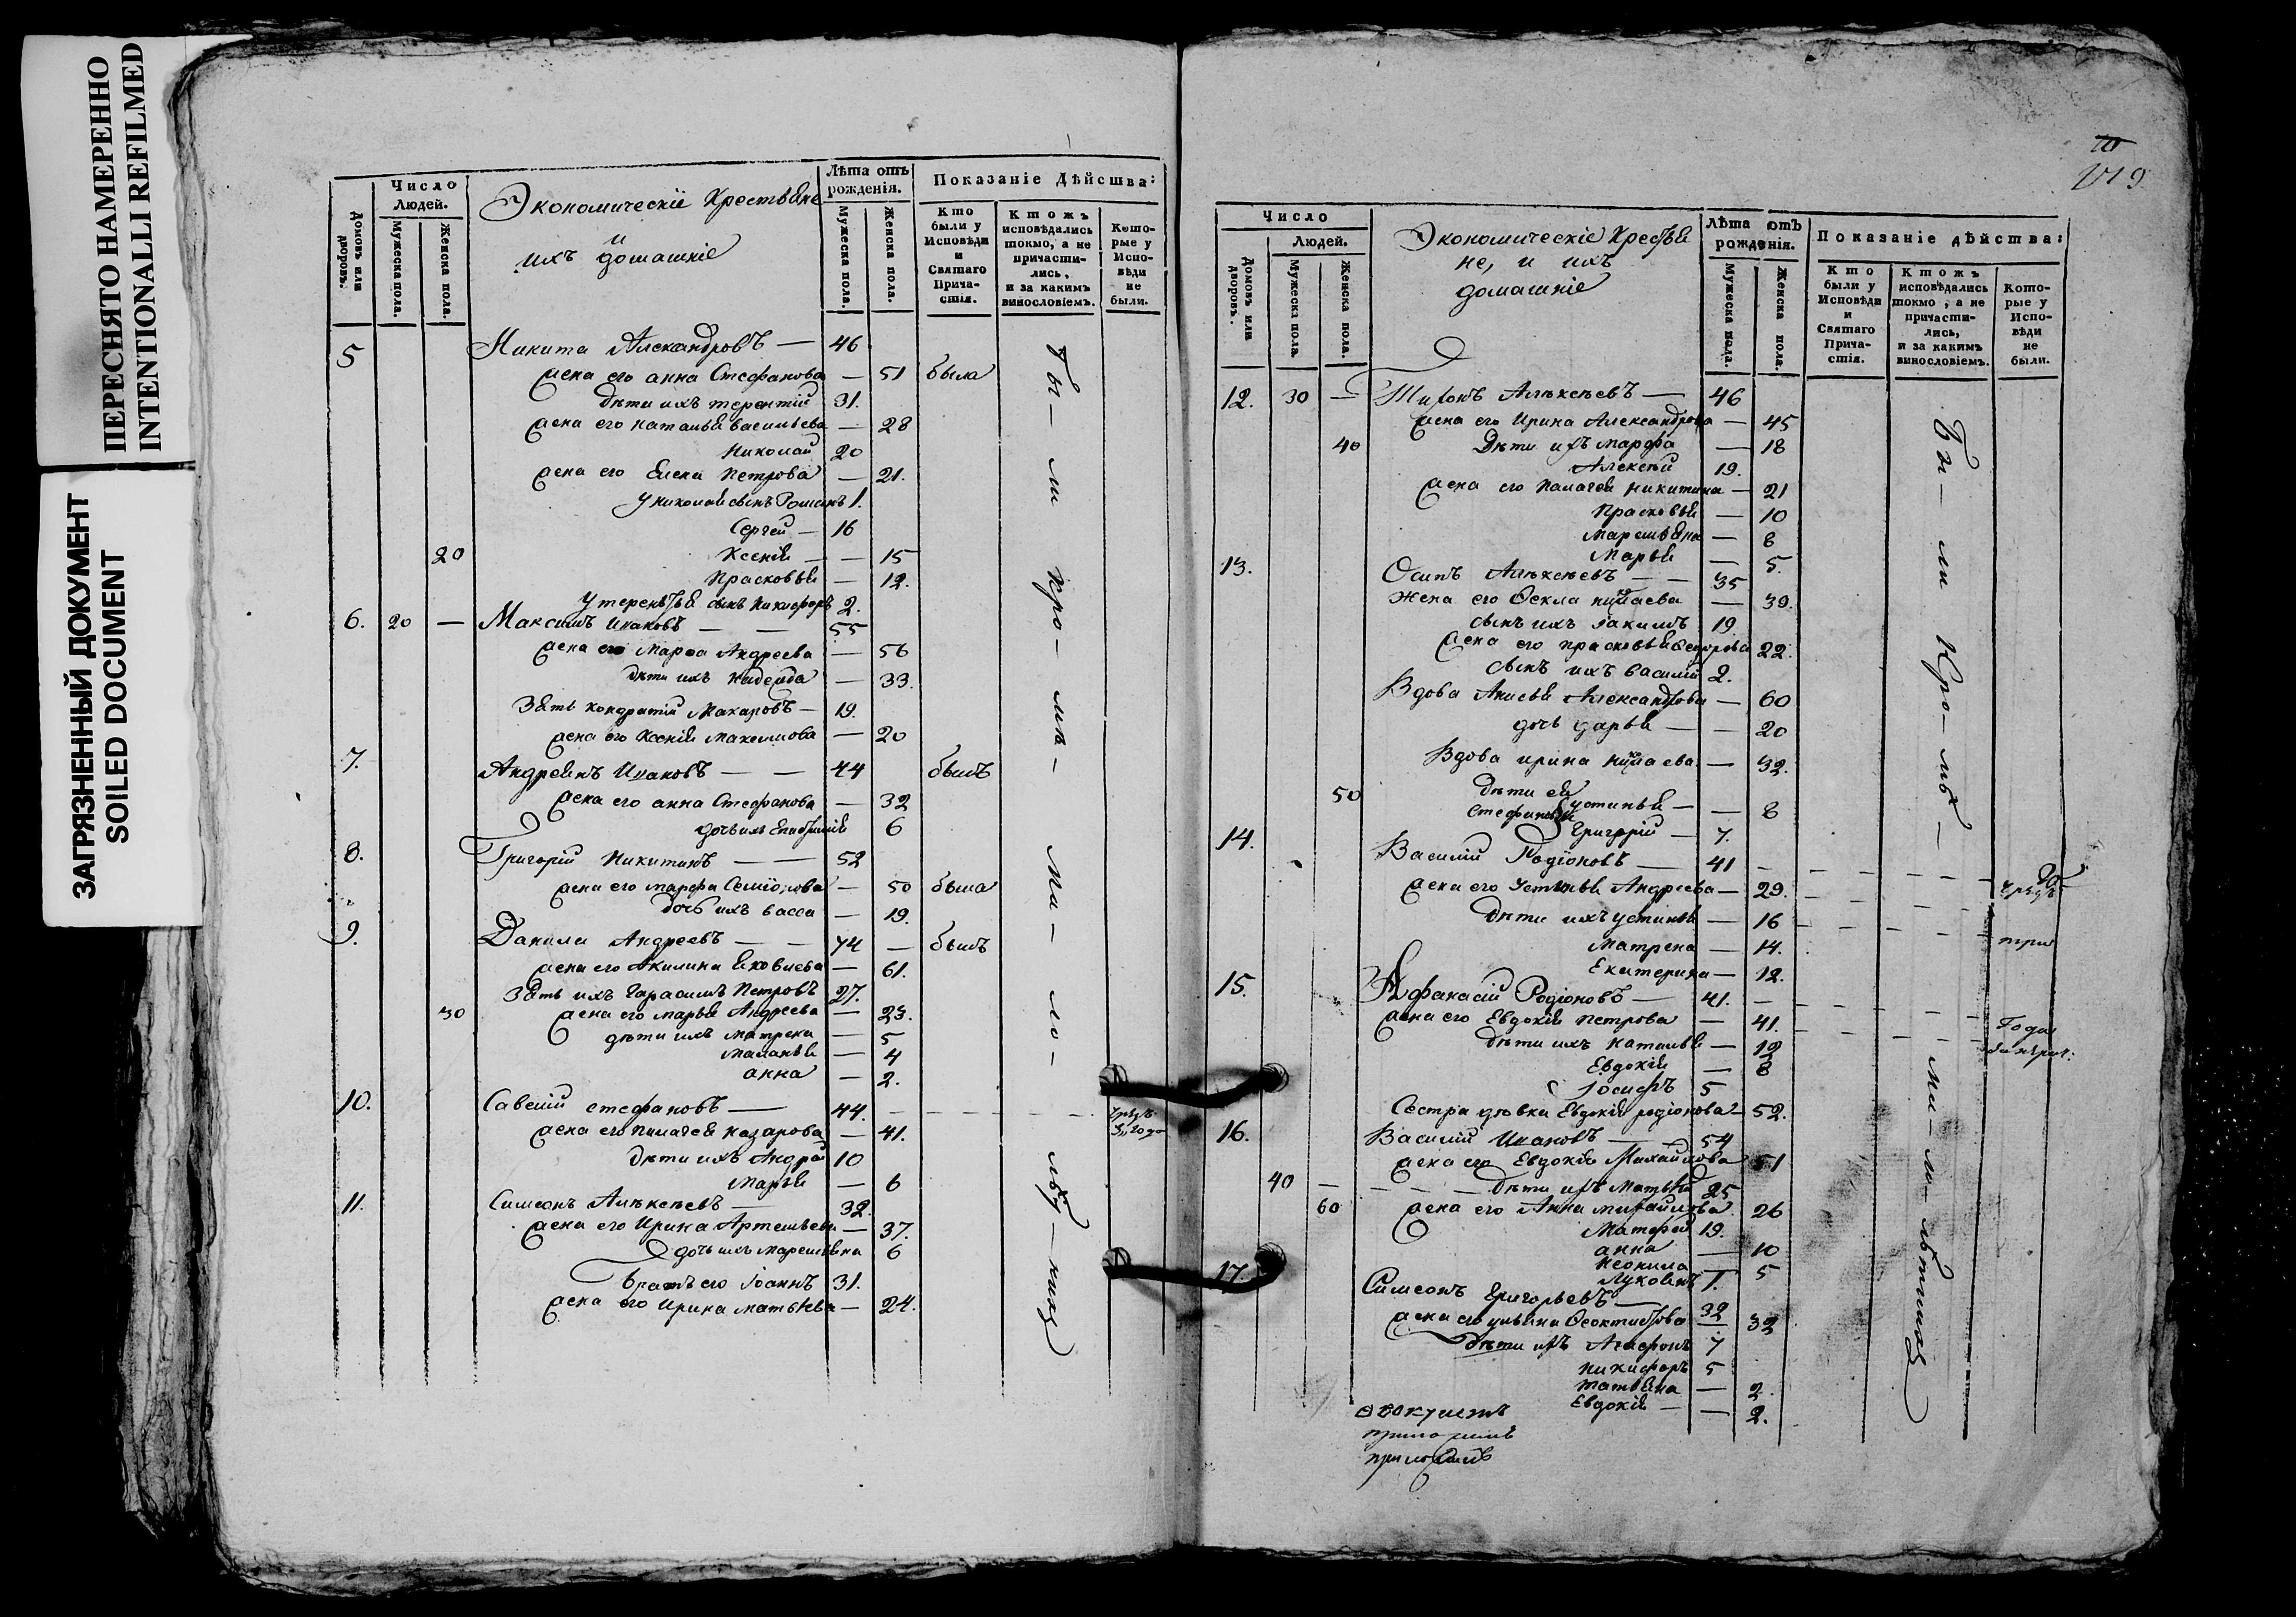 ПЕРЕСНЯТО НАМЕРЕННО
INTENTIONALLI REFILMED
ЗАГРЯЗНЕННЫЙ ДОКУМЕНТ
SOILED DOCUMENT
Домовъ или дворовъ.
Число Людей.
Мужеска пола.
Женска пола.
Экономическіе Крестьяне
и
ихъ домашніе
Лѣта отъ рожденія.
Мужеска пола.
Женска пола.
Показаніе Дѣйства:
Кто были у Исповѣди и Святаго Причастія.
Ктожъ исповѣдались токмо, а не причастились, и за какимъ винословіемъ.
Которые у Исповѣди не были.
5 Никита Александровъ — 46
жена его анна Стефанова — 51 была
дѣти ихъ терентій 31.
жена его наталья васильева — 28
Николай 20
жена его Елена Петрова — 21.
у николая сынъ Романъ 1.
Сергей — 16
20 Ксенія — — 15
Прасковья — 12.
у терентья сынъ Никифоръ 2.
6. 20 — Максимъ Ивановъ — — 55
жена его Марѳа Андреева — 56
дѣти ихъ надежда — 33.
Зять кондратій Макаровъ — 19.
жена его Ксенія максимова — 20
7. Андреянъ Ивановъ — — 44 былъ
жена его анна Стефанова — 32
дочь ихъ 6
8. Григорій Никитинъ — — 52
жена его марфа Семіонова — 50 была
дочь ихъ васса — 19.
9. Данила Андреевъ — — 74 — былъ
жена его Акилина яковлева — 61.
Зять ихъ Гарасимъ Петровъ 27.
30 жена его марья Андреева — 23.
дѣти ихъ матрена — 5
маланья — 4
анна — 2.
10. Савелій стефановъ — 44.
жена его пелагея назарова — 41.
дѣти ихъ Андрей 10
марья — 6
11. Симеонъ Алѣксѣевъ — 32.
жена его Ирина Артемьева — 37.
дочь ихъ маремьяна 6
братъ его Іоаннъ 31.
жена его Ирина матвѣева — 24.
Бы — ли кро — мѣ — ма — ло — лѣт — нихъ
Домовъ или дворовъ.
Число Людей.
Мужеска пола.
Женска пола.
Экономическіе Крестья
не, и ихъ
домашніе
Лѣта отъ рожденія.
Мужеска пола.
Женска пола.
Показаніе дѣйства:
Кто были у Исповѣди и Святаго Причастія.
Ктожъ исповѣдались токмо, а не причастились, и за какимъ винословіемъ.
Которые у Исповѣди не были.
12. 30 — Тихонъ Алѣксѣевъ — 46
жена его Ирина Александрова — 45
40 Дѣти ихъ марфа — 18
Алексѣй 19.
жена его Палагея никитина — 21
Прасковья — 10
маремьяна — 8
Марья — 5.
13. Осипъ Алѣксѣевъ — — 35
Жена его Ѳекла николаева — 39.
сынъ ихъ Іакимъ 19
жена его прасковья ѳедорова 22.
сынъ ихъ василій 2.
Вдова Анисья Александрова — 60
дочь дарья — — 20
Вдова ирина николаева — 32.
50 дѣти ея
устинья — — 8
Григорій — 7.
14. Василій Родіоновъ — 41
жена его Устинья Андреева — 29.
дѣти ихъ устинья — 16
три
Матрена — 14.
Екатерина — 12.
15. Афанасій Родіоновъ — 41.
жена его Евдокія петрова — 41.
Года
дѣти ихъ наталья — 12
Евдокія — 8
Іосифъ 5
Сестра дѣвка Евдокія родіонова 52.
16. Василій Ивановъ — 54
жена его Евдокія Михайлова 51
40 дѣти ихъ Матвѣй 25
60 жена его Анна михайлова 26
Матфей 19.
анна — 10
неонила — 5
1.
17. Симеонъ Григорьевъ — 32
жена его ульяна Ѳеоктистова 32
дѣти ихъ Агафонъ 7
Никифоръ 5
Татьяна — 2.
Евдокія — — 2.
Бы — ли Кро — мѣ — ма — ло — лѣтнихъ